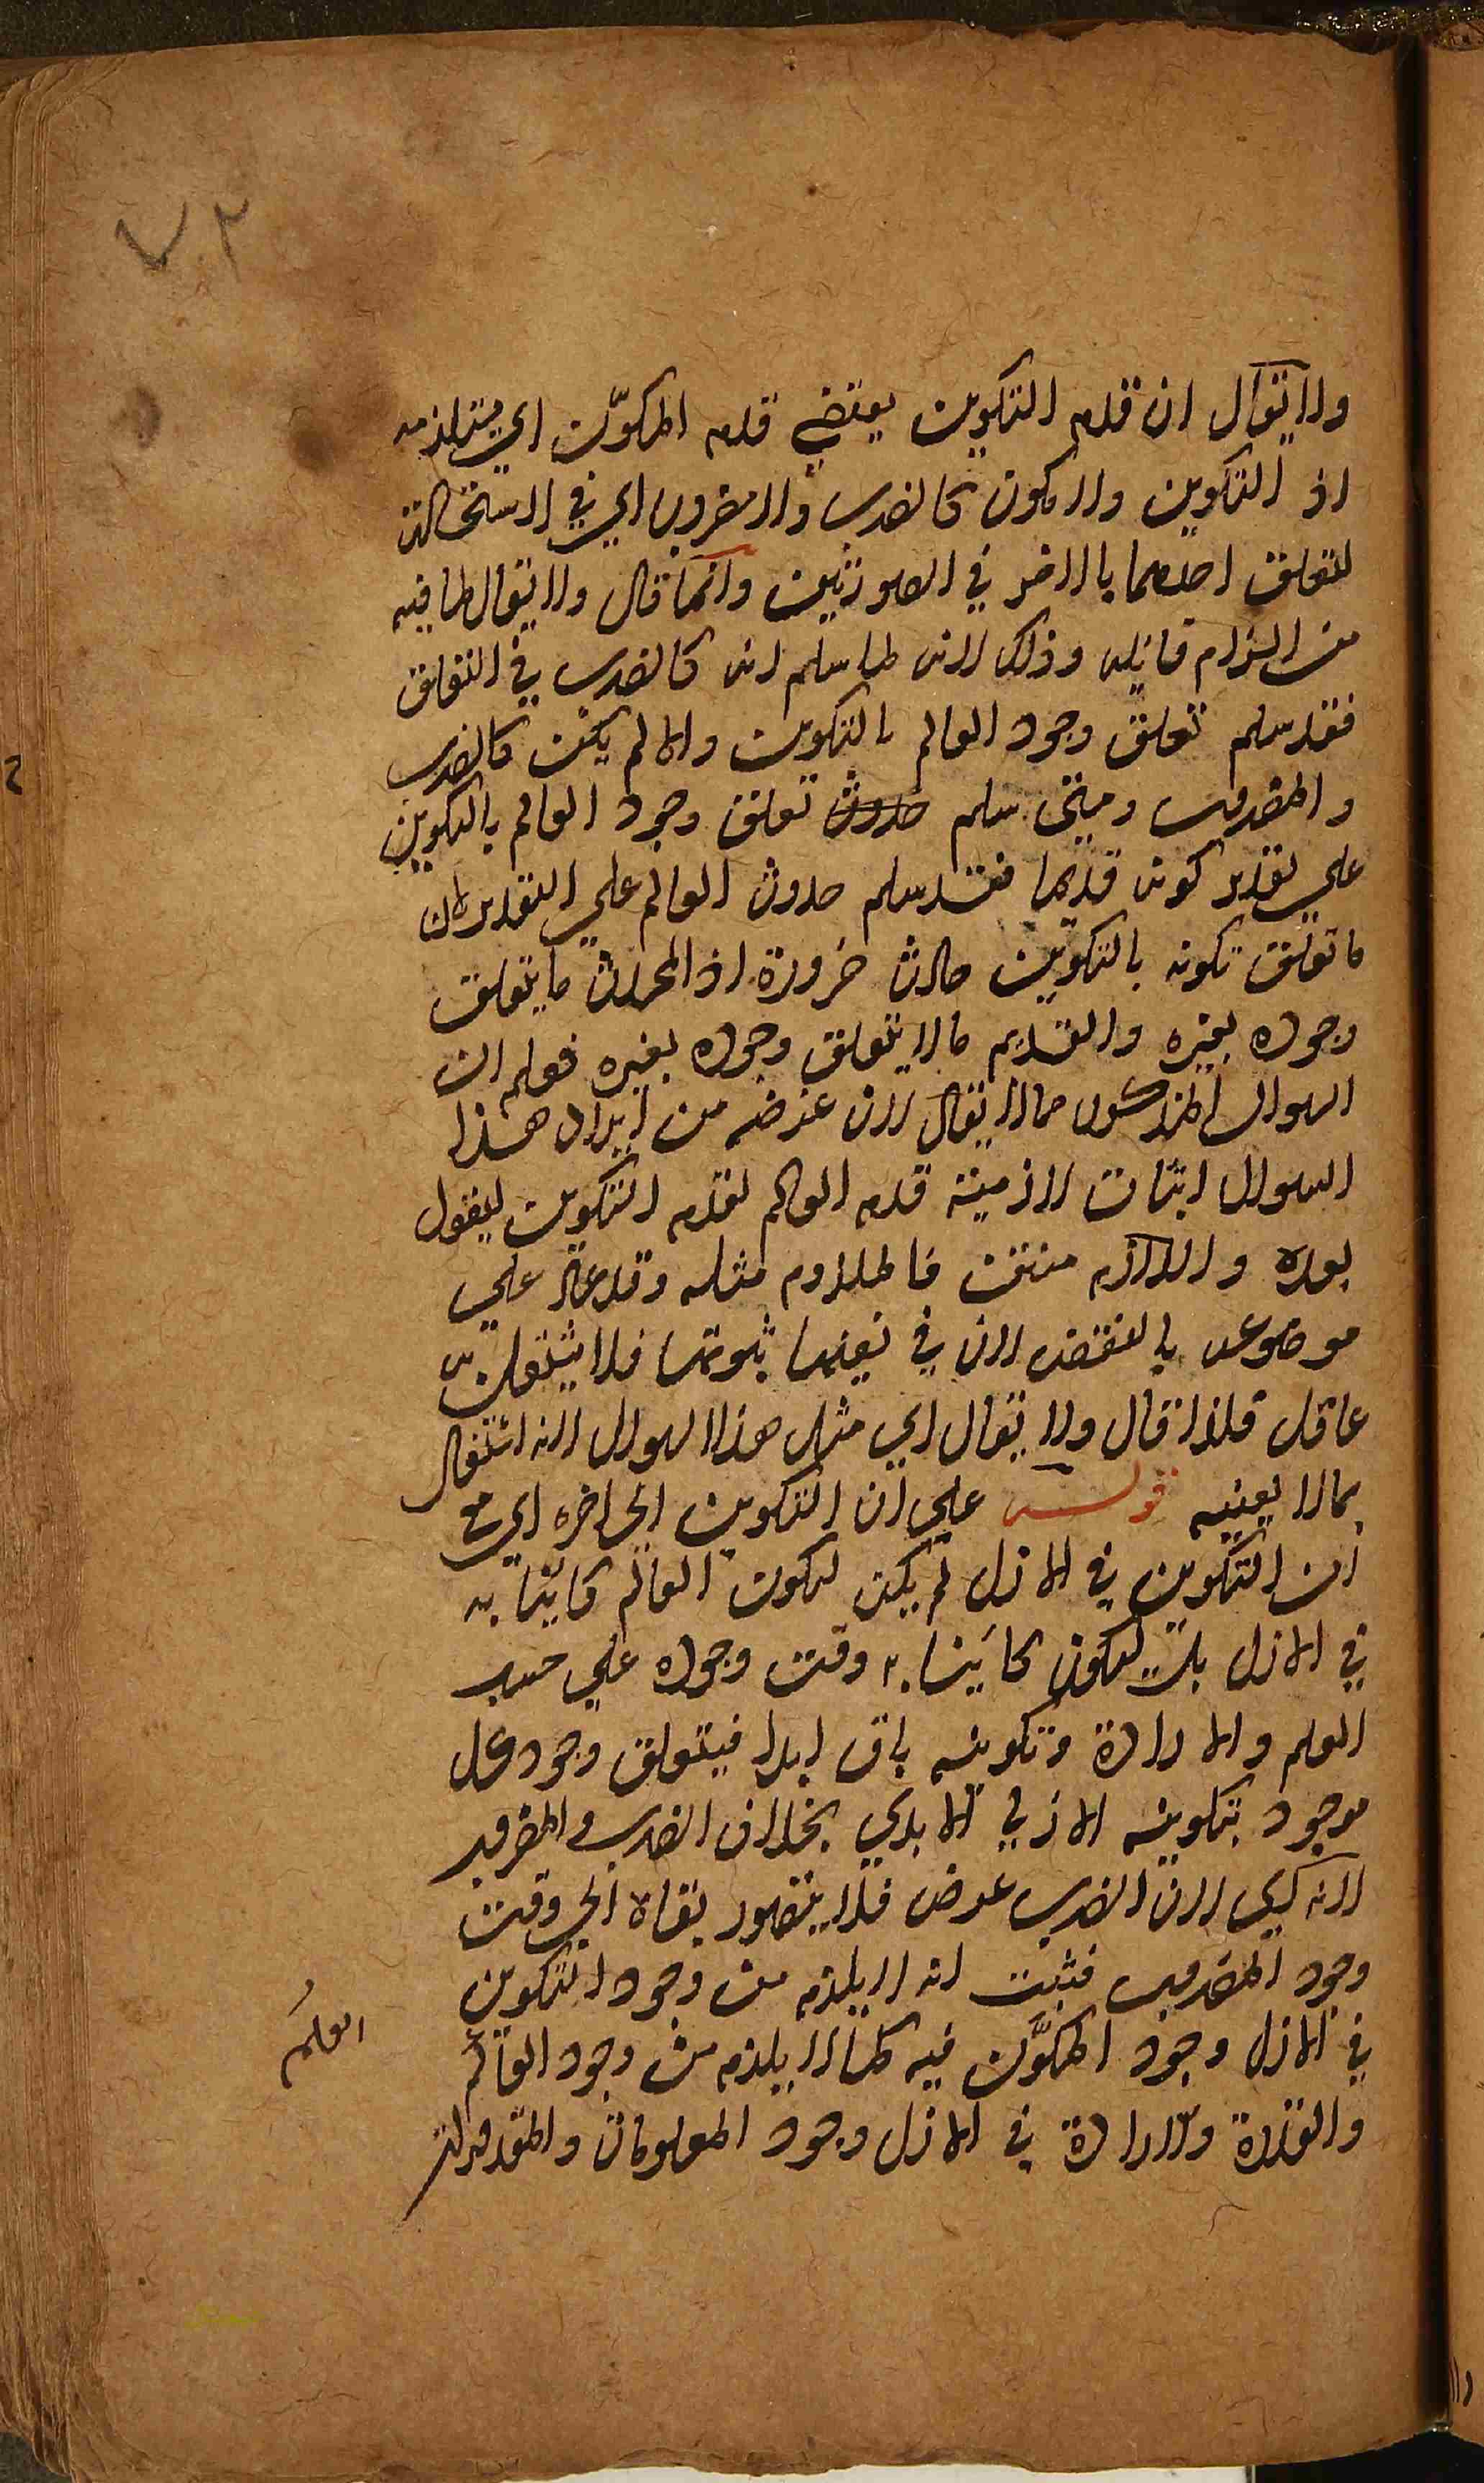 ٧٠٢
ولا يقال ان قدم التكوين يقتضي قدم المكوّن اي يستلزمه
اذ التكوين ولا مكون كالضرب ولا مضروب اي في الاستحالة
لتعلق احدهما بالاخر في الصورتين وانما قال ولا يقال لما فيه
من الزام قائله وذلك لانه لما سلم انه كالضرب في التعلق
فقد سلم تعلق وجود العالم بالتكوين والا لم يكن كالضرب
والمضروب ومتى سلم حدوث تعلق وجود العالم بالتكوين
علي تقدير كونه قديما فقد سلم حدوث العالم علي التقدير لان
ما تعلق تكونه بالتكوين حادث ضرورة اذ المحدث ما يتعلق
وجوده بغيره والقديم ما لا يتعلق وجوده بغيره فعلم ان
السوال المذكور مما لا يقال لان غرضه من ايراد هذا
السوال اثبات لازمية قدم العالم لقدم التكوين ليقول
بعده واللازم منتف فالملزوم مثله وقد عاد علي
موضوعه بالنقض لان في نفيها ثبوتها فلا يشتغل به
عاقل فلذا قال ولا يقال اي مثل هذا السوال لانه اشتغال
بما لا يعنيه قوله علي ان التكوين الي اخره اي مع
ان التكوين في الازل لم يكن ليكون العالم كائنا به
في الازل بل ليكون كائنا به وقت وجوده علي حسب
العلم والارادة وتكوينه باق ابدا فيتعلق وجود كل
موجود بتكوينه الازلي الابدي بخلاف الضرب والمضروب
لانه اي لان الضرب عرض فلا يتصور بقاه الي وقت
وجود المضروب فثبت انه لا يلزم من وجود التكوين
في الازل وجود المكوَّن فيه كما لا يلزم من وجود العالم
العلم
والقدرة والارادة في الازل وجود المعلومات والمقدورات